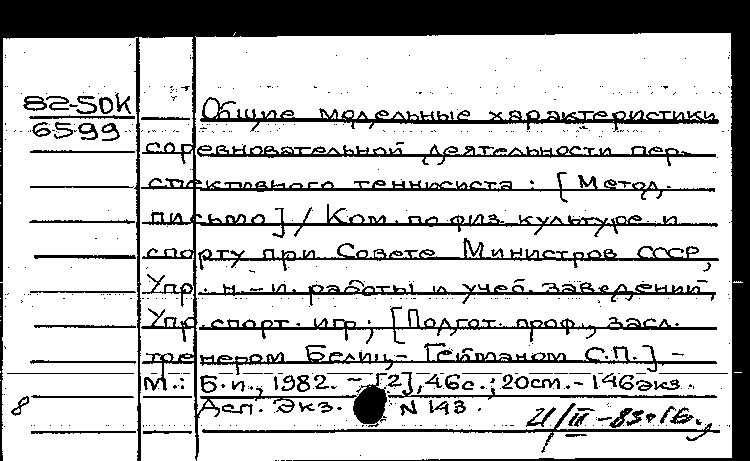 82-5OK
6599
Общие модельные характеристики
соревновательной деятельности пер-
спективного теннисиста : [Метод.
письмо] / Ком. по физ. культуре и
спорту при Совете Министров СССР,
Упр. н.-и. работы и учеб. заведений,
Упр. спорт. игр ; [Подгот. проф., засл.
тренером Белиц-Гейманом С.П.] -
М.: Б.и., 1982. - [2], 46 с.; 20 см. - 146 экз.
8 Деп. Экз. N 143.